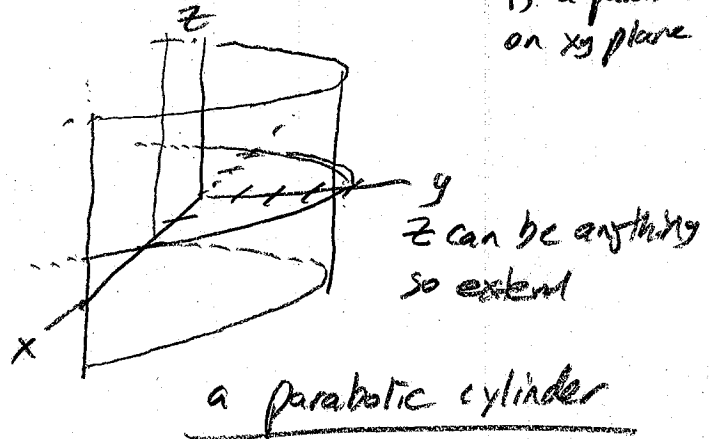 Z
is a
on xy plane
y
Z can be anything
so extend
x
a parabolic cylinder